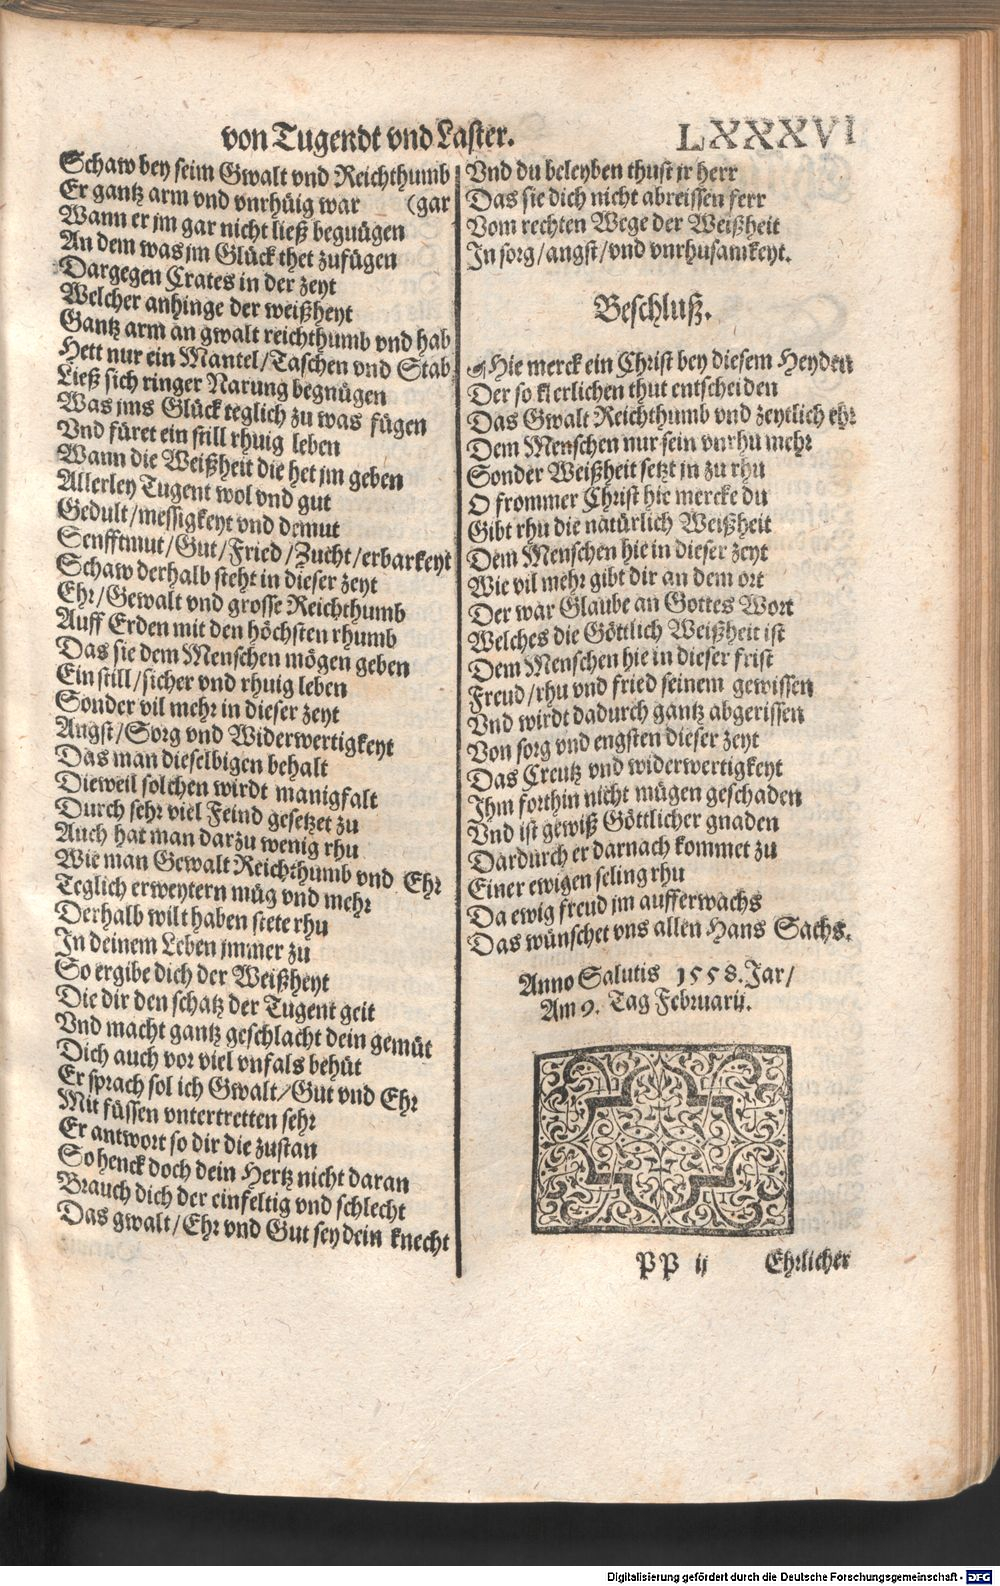 von Tugendt vnd Laster. LXXXVI
Schaw bey seim Gwalt vnd Reichthumb
Er gantz arm vnd vnrhüig war (gar
Wann er jm gar nicht ließ begnügen
An dem was jm Glück thet zufügen
Dargegen Crates in der zeyt
Welcher anhinge der weißheyt
Gantz arm an gwalt reichthumb vnd hab
Hett nur ein Mantel/Taschen vnd Stab
Ließ sich ringer Narung begnügen
Was jms Glück teglich zu was fügen
Vnd füret ein still rhuig leben
Wann die Weißheit die het jm geben
Allerley Tugent wol vnd gut
Gedult/messigkeyt vnd demut
Senfftmut/Gut/Fried/Zucht/erbarkeyt
Schaw derhalb steht in dieser zeyt
Ehr/Gewalt vnd grosse Reichthumb
Auff Erden mit den höchsten rhumb
Das sie dem Menschen mögen geben
Ein still/sicher vnd rhuig leben
Sonder vil mehr in dieser zeyt
Angst/Sorg vnd Widerwertigkeyt
Das man dieselbigen behalt
Dieweil solchen wirdt manigfalt
Durch sehr viel Feind gesetzet zu
Auch hat man darzu wenig rhu
Wie man Gewalt Reichthumb vnd Ehr
Teglich erweytern müg vnd mehr
Derhalb wilt haben stete rhu
In deinem Leben jmmer zu
So ergibe dich der Weißheyt
Die dir den schatz der Tugent geit
Vnd macht gantz geschlacht dein gemüt
Dich auch vor viel vnfals behüt
Er sprach sol ich Gwalt/Gut vnd Ehr
Mit füssen vntertretten sehr
Er antwort so dir die zustan
So henck doch dein Hertz nicht daran
Brauch dich der einfeltig vnd schlecht
Das gwalt/Ehr vnd Gut sey dein knecht
Vnd du beleyben thust jr herr
Das sie dich nicht abreissen ferr
Vom rechten Wege der Weißheit
In sorg/angst/vnd vnrhusamkeyt.
Beschluß.
Hie merck ein Christ bey diesem Heyden
Der so klerlichen thut entscheiden
Das Gwalt Reichthumb vnd zeytlich ehr
Dem Menschen nur sein vnrhu mehr
Sonder Weißheit setzt in zu rhu
O frommer Christ hie mercke du
Gibt rhu die natürlich Weißheit
Dem Menschen hie in dieser zeyt
Wie vil mehr gibt dir an dem ort
Der war Glaube an Gottes Wort
Welches die Göttlich Weißheit ist
Dem Menschen hie in dieser frist
Freud/rhu vnd fried seinem gewissen
Vnd wirdt dadurch gantz abgerissen
Von sorg vnd engsten dieser zeyt
Das Creutz vnd widerwertigkeyt
Ihm forthin nicht mügen geschaden
Vnd ist gewiß Göttlicher gnaden
Dardurch er darnach kommet zu
Einer ewigen seling rhu
Da ewig freud jm aufferwachs
Das wünschet vns allen Hans Sachs.
Anno Salutis 1558. Jar/
Am 9. Tag Februarij.
PP ij Ehrlicher
Digitalisierung gefördert durch die Deutsche Forschungsgemeinschaft - DFG